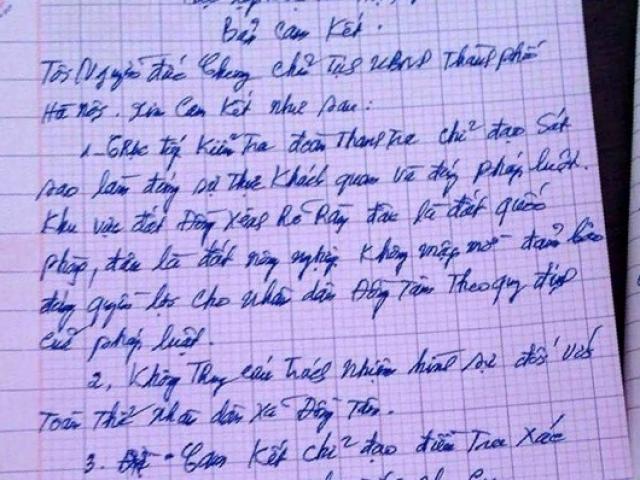 Bản Cam Kết.
Tôi Nguyễn đức Chung chủ tịch UBND Thành phố
Hà nội. xin Cam Kết như sau:
1- Trực tiếp Kiểm Tra đoàn Thanh Tra chỉ đạo Sát
sao làm đúng sự thực Khách quan và đúng pháp luật.
Khu vực đất Đồng Xênh Rõ Ràng đâu là đất quốc
phòng, đâu là đất nông nghiệp Không mập mờ đảm bảo
đúng quyền lợi cho nhân dân Đồng Tâm Theo quy định
của pháp luật.
2, Không Truy cứu Trách nhiệm hình sự đối với
Toàn Thể nhân dân xã Đồng Tâm.
3. Cam Kết chỉ đạo điều Tra Xác